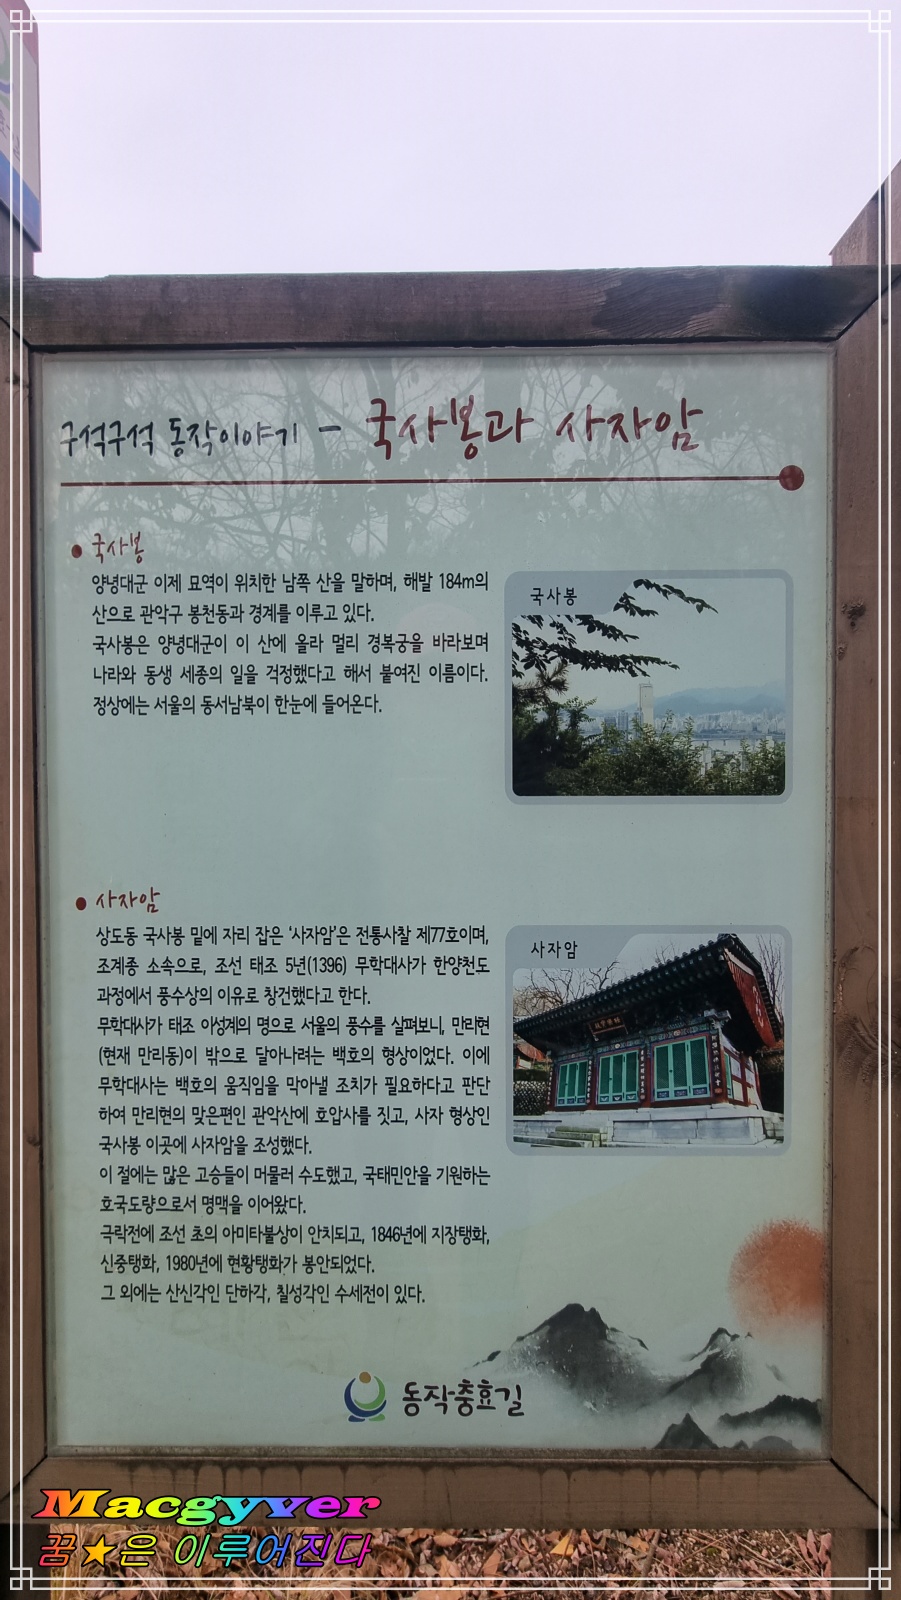 구석구석 동작이야기 - 국사봉과 사자암
국사봉
양녕대군 이제 묘역이 위치한 남쪽 산을 말하며, 해발 184m의
산으로 관악구 봉천동과 경계를 이루고 있다.
국사봉은 양녕대군이 이 산에 올라 멀리 경복궁을 바라보며
나라와 동생 세종의 일을 걱정했다고 해서 붙여진 이름이다.
정상에는 서울의 동서남북이 한눈에 들어온다.
국사봉
사자암
상도동 국사봉 밑에 자리 잡은 '사자암'은 전통사찰 제77호이며,
조계종 소속으로, 조선 태조 5년(1396) 무학대사가 한양천도
과정에서 풍수상의 이유로 창건했다고 한다.
무학대사가 태조 이성계의 명으로 서울의 풍수를 살펴보니, 만리현
(현재 만리동)이 밖으로 달아나려는 백호의 형상이었다. 이에
무학대사는 백호의 움직임을 막아낼 조치가 필요하다고 판단
하여 만리현의 맞은편인 관악산에 호압사를 짓고, 사자 형상인
국사봉 이곳에 사자암을 조성했다.
이 절에는 많은 고승들이 머물러 수도했고, 국태민안을 기원하는
호국도량으로서 명맥을 이어왔다.
극락전에 조선 초의 아미타불상이 안치되고, 1846년에 지장탱화,
신중탱화, 1980년에 현황탱화가 봉안되었다.
그 외에는 산신각인 단하각, 칠성각인 수세전이 있다.
사자암
동작충효길
Macgyver
꿈★은 이루어진다